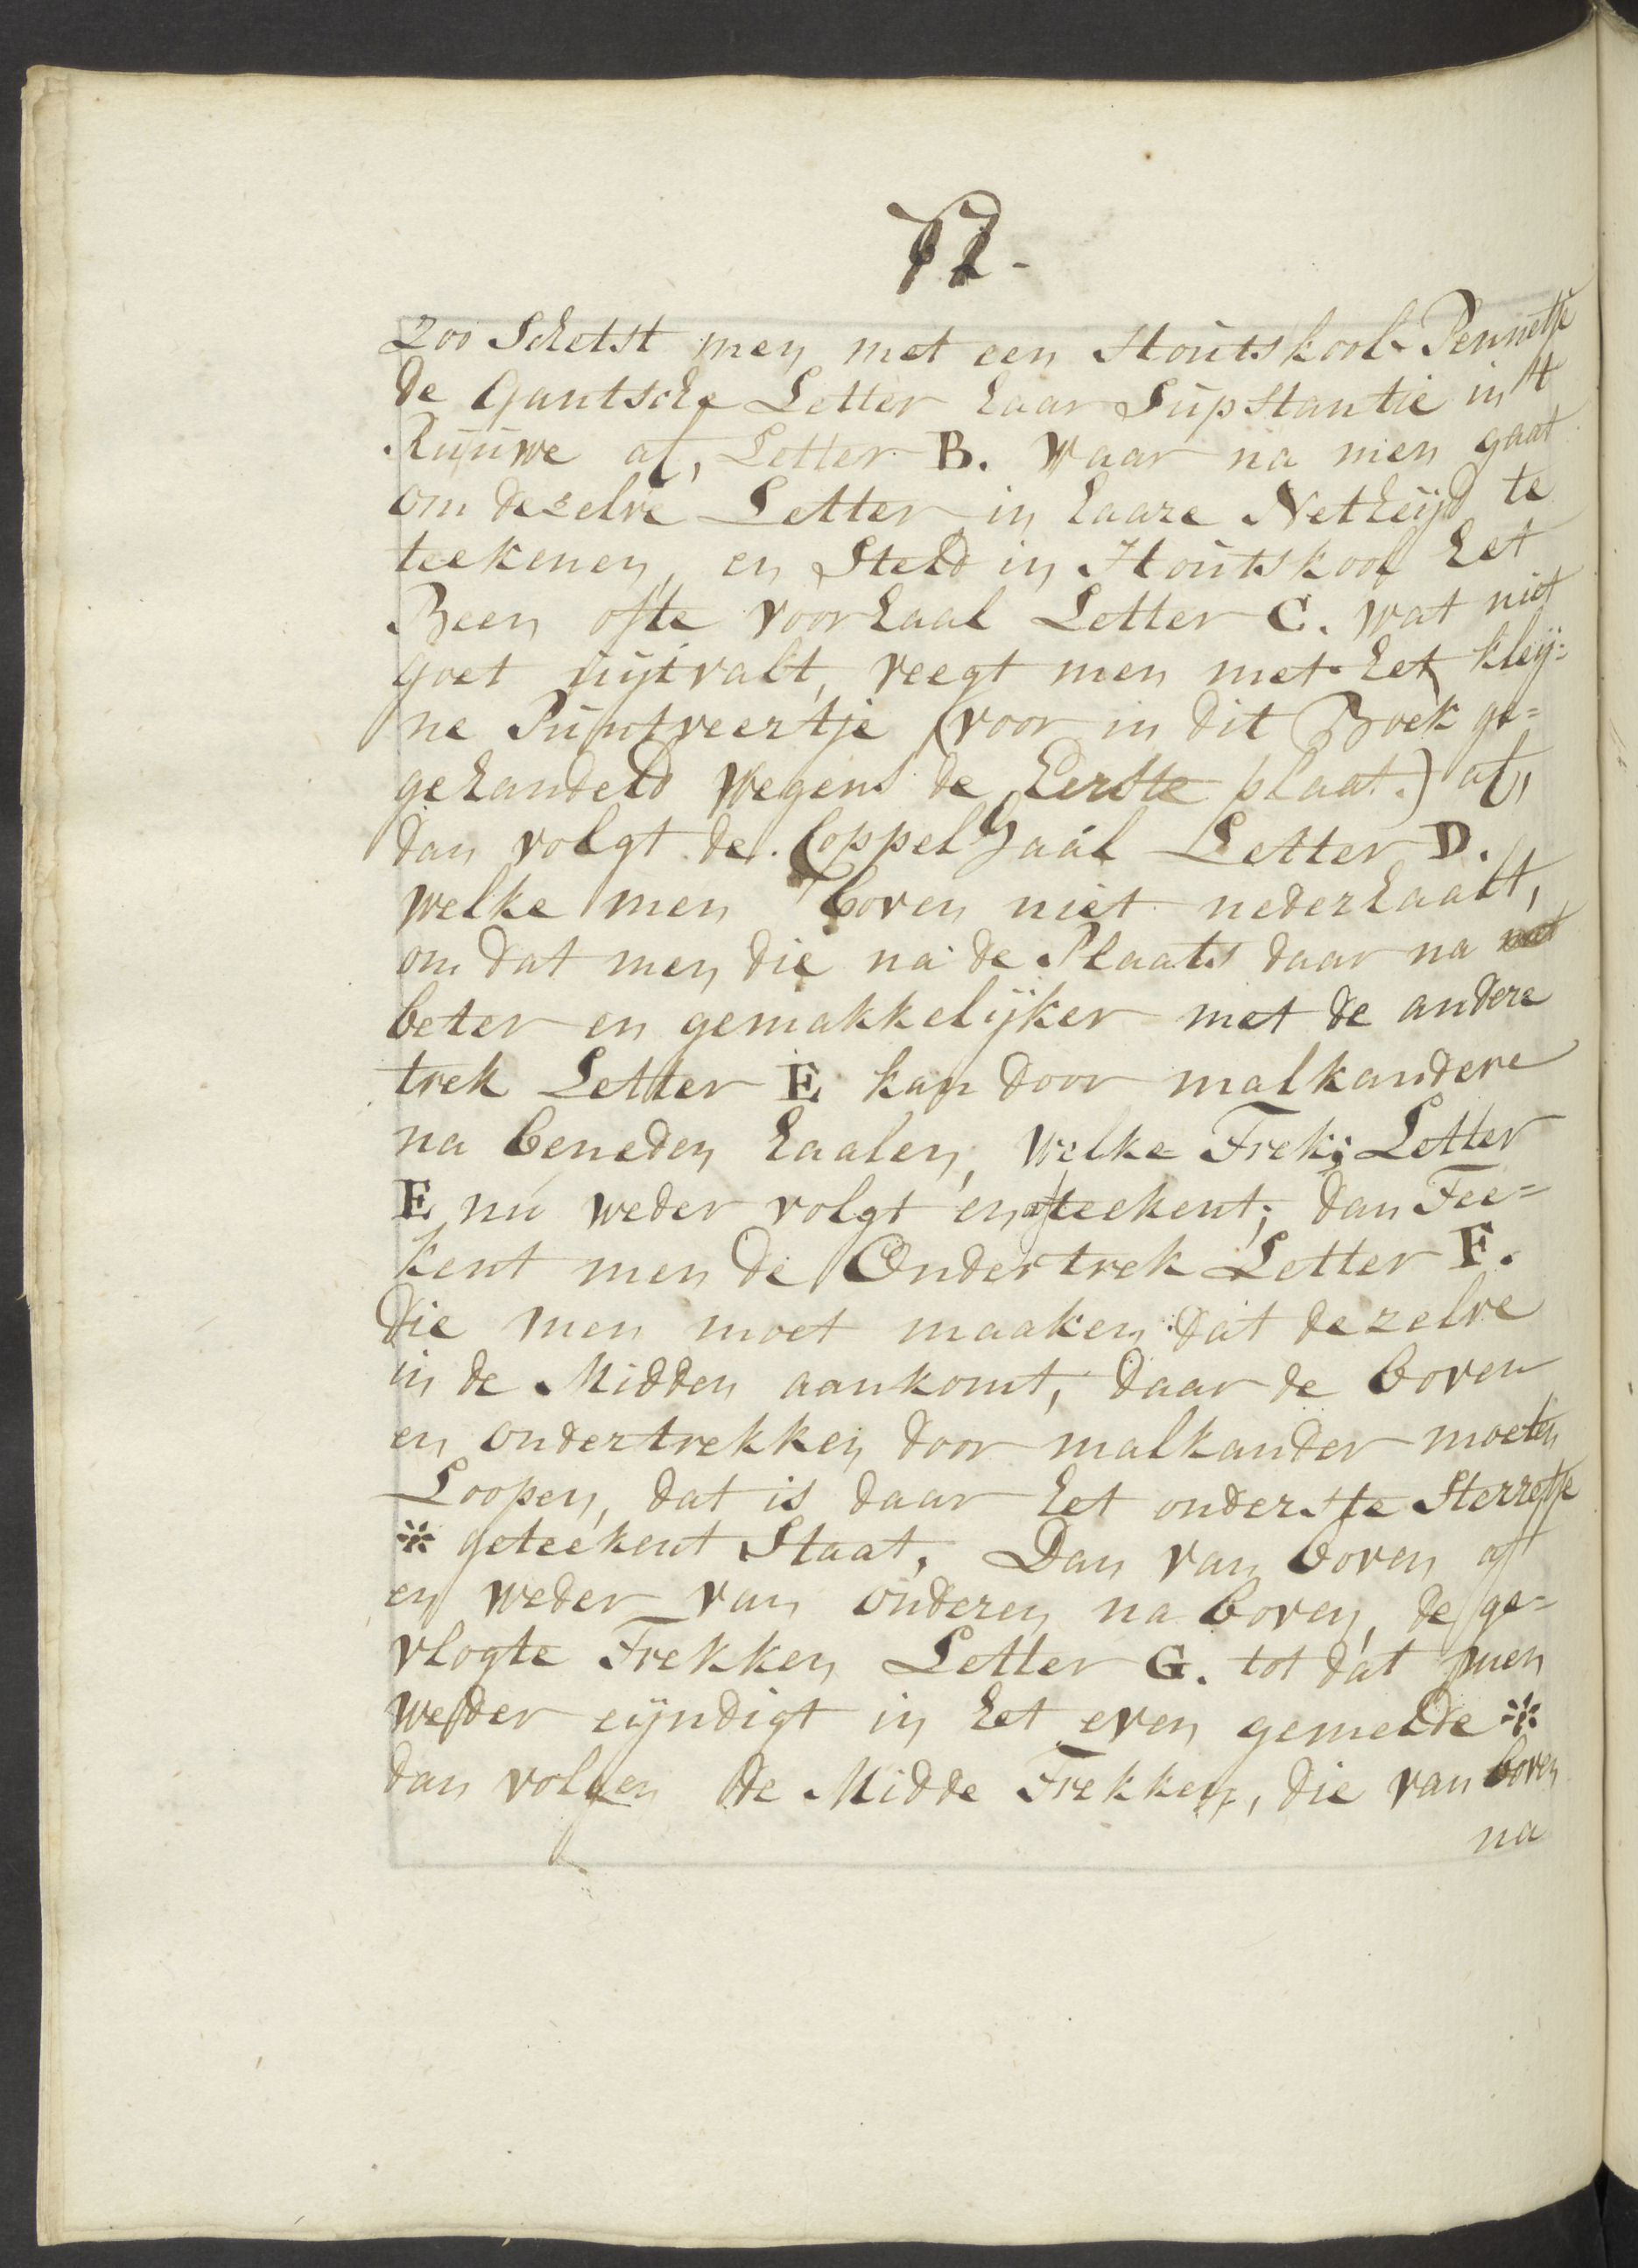 12.
Zoo Schetst men met een Houtskool-Pennetje
de Gantsche Letter haar Supstantie in 't
Ruuwe af, Letter B. Waar na men gaat
om dezelve Letter in haare Netheijd te
teekenen, en Steld in Houtskool het
Been ofte voorhaal Letter C. wat niet
goet uytvalt, veegt men met het kleij=
ne Puntveertje (voor in dit Boek ge=
gehandeld Wegens de Eerste plaat.) af,
dan volgt de CoppelHaal Letter D.
welke men boven niet nederhaalt,
om dat men die na de Plaats daar na
beter en gemakkelijker met de andere
trek Letter E kan door malkandere
na beneden haalen, Welke Trek; Letter
E nu weder volgt en afteekent; dan Tee=
kent men de Ondertrek Letter F.
die men moet maaken dat dezelve
in de Midden aankomt, daar de boven
en ondertrekken door malkander moeten
Loopen, dat is daar het onderste Sterretje
* geteekent Staat. Dan van boven af
en weder van onderen na boven, de ge=
vlogte Trekken Letter G. tot dat men
weder eijndigt in het even gemelde *
dan volgen de Midde Trekken, die van boven
na